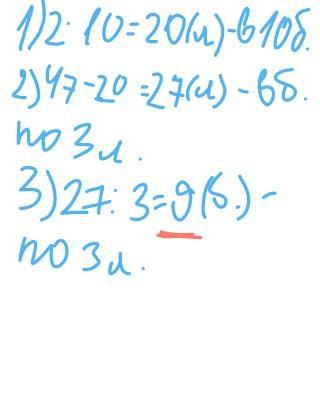 1) 2 · 10 = 20 (л) - в 10 б.
2) 47 - 20 = 27 (л) - в б.
по 3 л.
3) 27 : 3 = 9 (б.) -
по 3 л.